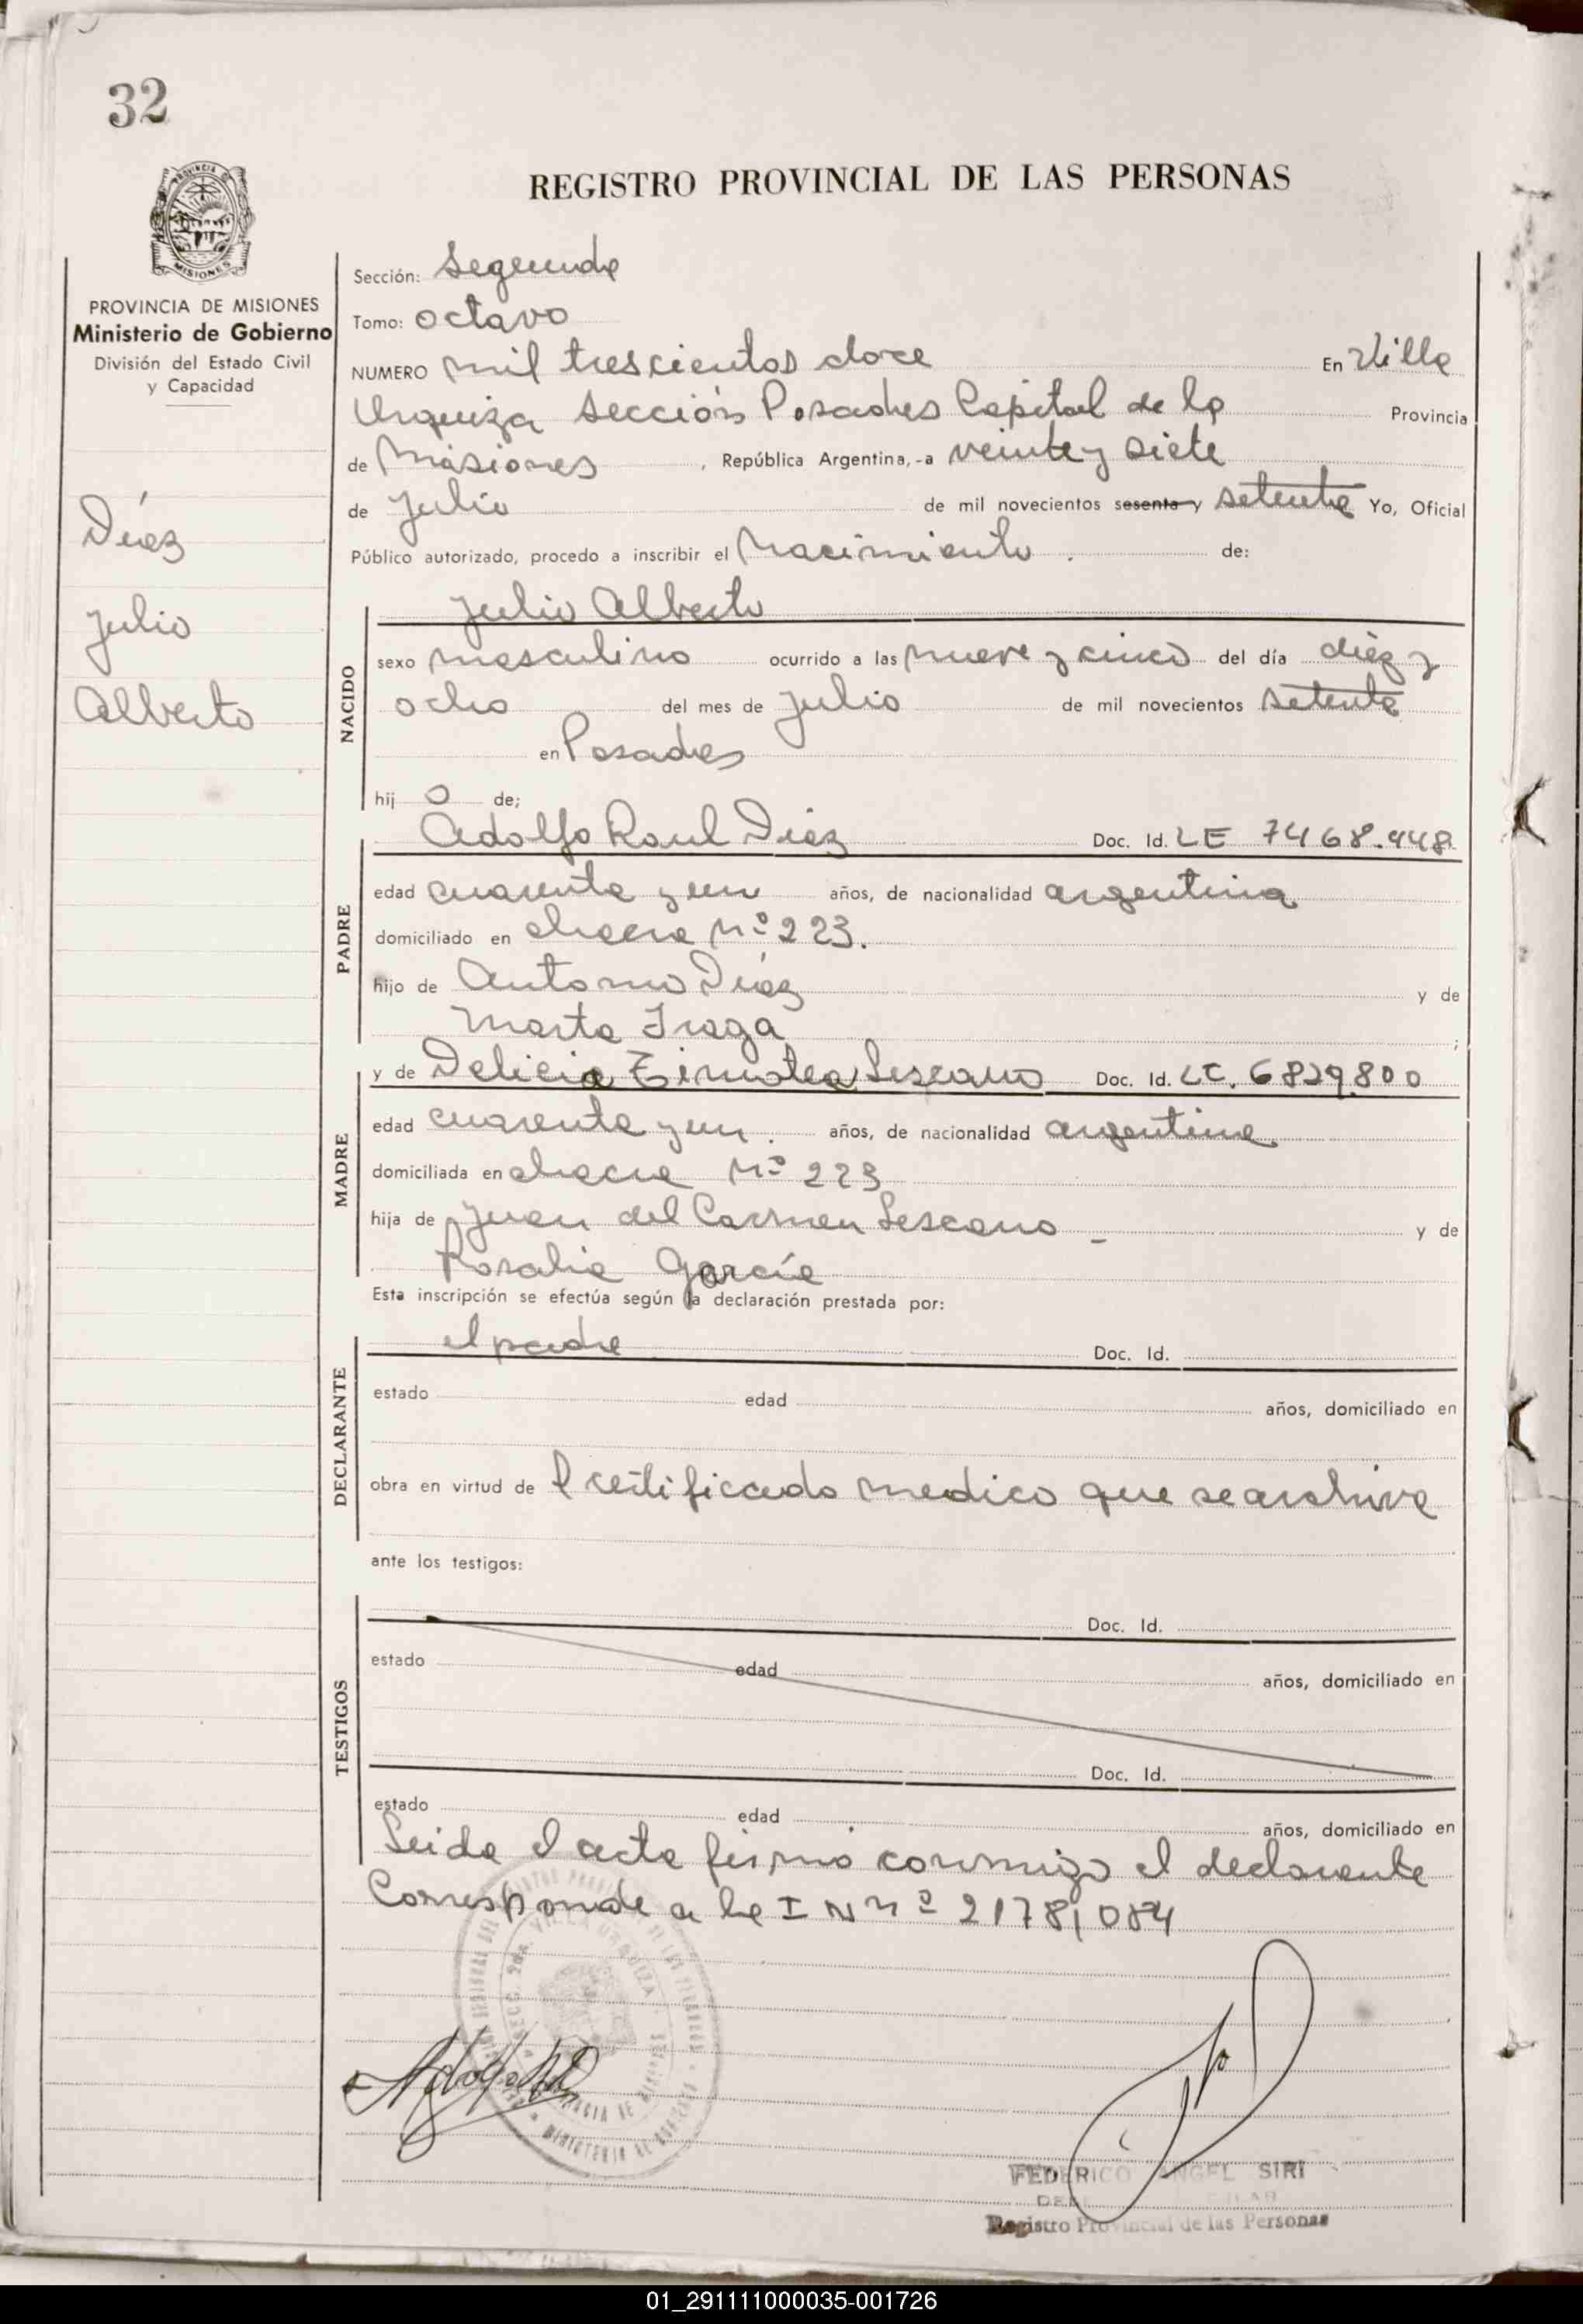 32
REGISTRO PROVINCIAL DE LAS PERSONAS
PROVINCIA DE MISIONES
Ministerio de Gobierno
División del Estado Civil
y Capacidad
Díaz
Julio
Alberto
Sección: Segunda
Tomo: octavo
NUMERO mil trescientos doce En Villa
Urquiza Sección Posadas Capital de la Provincia
de Misiones, República Argentina,-a veinte y siete
de Julio de mil novecientos sesenta y setenta Yo, Oficial
Público autorizado, procedo a inscribir el Nacimiento. de:
NACIDO
Julio Alberto
sexo masculino ocurrido a las nueve y cinco del día diez y
ocho del mes de Julio de mil novecientos setenta
en Posadas
hij o de;
PADRE
Adolfo Raul Díaz Doc. Id. LE 7468.448
edad cuarenta y un años, de nacionalidad argentina
domiciliado en chacra Nº 223.
hijo de Antonio Díaz y de
Marta ;
MADRE
y de Delicia Timotea Lescano Doc. Id. LC. 6829.800
edad cuarenta y un. años, de nacionalidad argentina
domiciliada en chacra Nº 223
hija de Juan del Carmen Lescano - y de
Rosalia García
Esta inscripción se efectúa según la declaración prestada por:
DECLARANTE
el padre Doc. Id.
estado edad años, domiciliado en
obra en virtud de l certificado medico que se archiva
ante los testigos:
TESTIGOS
Doc. Id.
estado edad años, domiciliado en
Doc. Id.
estado edad años, domiciliado en
Leida el acta firmó conmigo el declarante
Corresponde a la I N nº 2178,084
SECC. 2da. VILLA URQUIZA
FEDERICO ANGEL SIRI
Registro Provincial de las Personas
01_291111000035-001726